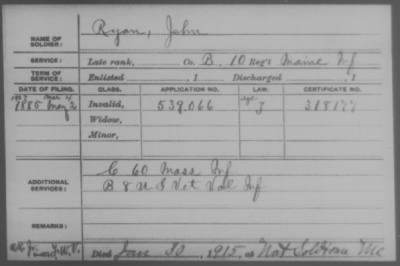 NAME OF SOLDIER: Ryan, John
SERVICE: Late rank, Co. B, 10 Reg't Maine Inf
TERM OF SERVICE: Enlisted , 1 Discharged , 1
DATE OF FILING. CLASS. APPLICATION NO. LAW. CERTIFICATE NO.
1885 May 2 Invalid, 539,066 318177
Widow,
Minor,
ADDITIONAL SERVICES: C 60 Mass Inf
B 8 U S Vet Vol Inf
REMARKS:
Died Jan 30, 1915, at Nat Sol Home Me